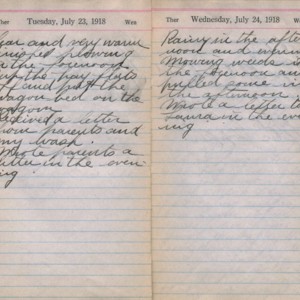 Ther Tuesday, July 23, 1918 Wea
and very warm
plowing
in the forenoon
the hay flats
off and put the
wagon bed on the
wagon
Received a letter
from parents and
my wash.
Wrote parents a
letter in the even-
ing
Ther Wednesday, July 24, 1918 W
Rainy in the after
noon and evening
Mowing weeds in
the forenoon and
pulled some in
the afternoon
Wrote a letter to
Laura in the even
ing